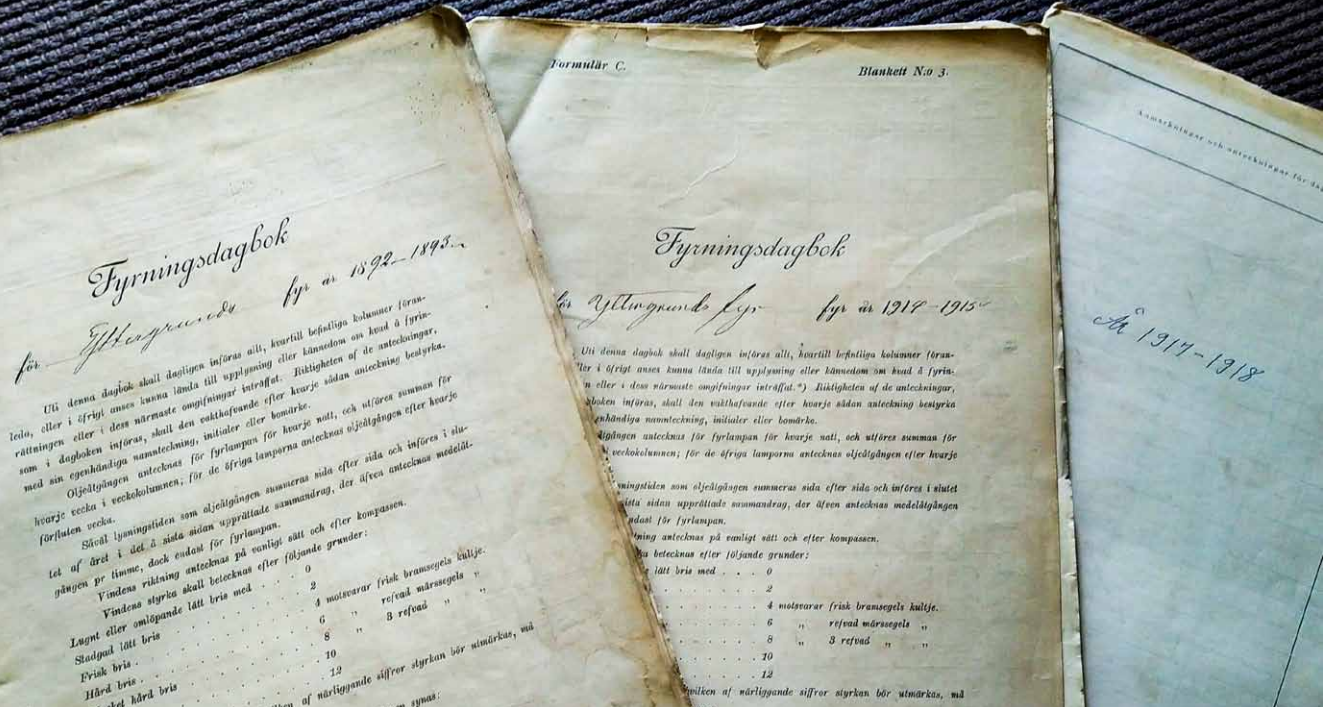 Fyrningsdagbok
för Yttergrunds fyr år 1892-1893
Uti denna dagbok skall dagligen införas allt, hvartill befintliga kolumner föran-
leda, eller i öfrigt anses kunna lända till upplysning eller kännedom om hvad å fyrin-
rättningen eller i dess närmaste omgifningar inträffat. Riktigheten af de anteckningar,
som i dagboken införas, skall den vakthafvande efter hvarje sådan anteckning bestyrka
med sin egenhändiga namnteckning, initialer eller bomärke.
Oljeåtgången antecknas för fyrlampan för hvarje natt, och utföres summan för
hvarje vecka i veckokolumnen; för de öfriga lamporna antecknas oljeåtgången efter hvarje
förfluten vecka.
Såväl lysningstiden som oljeåtgången summeras sida efter sida och införes i slu-
tet af året i det å sista sidan upprättade sammandrag, der äfven antecknas medelåt-
gången pr timme, dock endast för fyrlampan.
Vindens riktning antecknas på vanligt sätt och efter kompassen.
Vindens styrka skall betecknas efter följande grunder:
Lugnt eller omlöpande lätt bris med . . . . 0
Stadgad lätt bris . . . . 2
Frisk bris . . . . 4 motsvarar frisk bramsegels kultje.
Hård bris . . . . 6 „ refvad märssegels „
hård bris . . . . 8 „ 3 refvad „ „
10
12
af närliggande siffror styrkan bör utmärkas, må
synas:
Formulär C.
Blankett N:o 3.
Fyrningsdagbok
för Yttergrunds fyr fyr år 1914-1915
Uti denna dagbok skall dagligen införas allt, hvartill befintliga kolumner föran-
eller i öfrigt anses kunna lända till upplysning eller kännedom om hvad å fyrin-
n eller i dess närmaste omgifningar inträffat.*) Riktigheten af de anteckningar,
gboken införas, skall den vakthafvande efter hvarje sådan anteckning bestyrka
genhändiga namnteckning, initialer eller bomärke.
åtgången antecknas för fyrlampan för hvarje natt, och utföres summan för
veckokolumnen; för de öfriga lamporna antecknas oljeåtgången efter hvarje
ysningstiden som oljeåtgången summeras sida efter sida och införes i slutet
sista sidan upprättade sammandrag, der äfven antecknas medelåtgången
endast för fyrlampan.
tning antecknas på vanligt sätt och efter kompassen.
ka betecknas efter följande grunder:
lätt bris med . . . . 0
2
4 motsvarar frisk bramsegels kultje.
6 „ refvad märssegels „
8 „ 3 refvad „ „
10
12
hvilken af närliggande siffror styrkan bör utmärkas, må
Anmärkningar och anteckningar för
År 1917-1918